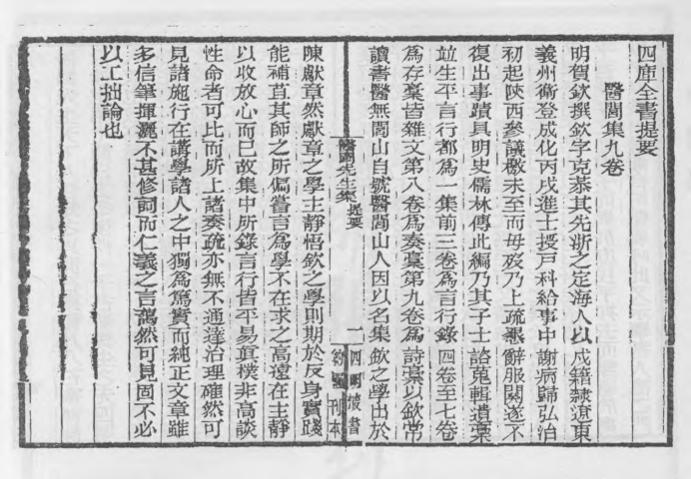 四庫全書提要
醫閭集九卷
明賀欽撰欽字克恭其先浙之定海人以戍籍隸遼東
義州衞登成化丙戌進士授戸科給事中謝病歸弘治
初起陝西參議檄未至而母歿乃上疏懇辭服闋遂不
復出事蹟具明史儒林傳此編乃其子士諮蒐輯遺藁
竝生平言行都爲一集前三卷爲言行錄四卷至七卷
爲存藁皆雜文第八卷爲奏藁第九卷爲詩藁以欽常
讀書醫無閭山自號醫閭山人因以名集欽之學出於
醫閭先生集 提要 一 四明叢書 約園刊本
陳獻章然獻章之學主靜悟欽之學則期於反身實踐
能補苴其師之所偏嘗言爲學不在求之高遠在主靜
以收放心而已故集中所錄言行皆平易眞樸非高談
性命者可比而所上諸奏疏亦無不通達治理確然可
見諸施行在講學諸人之中獨爲篤實而純正文章雖
多信筆揮灑不甚修詞而仁義之言藹然可見固不必
以工拙論也